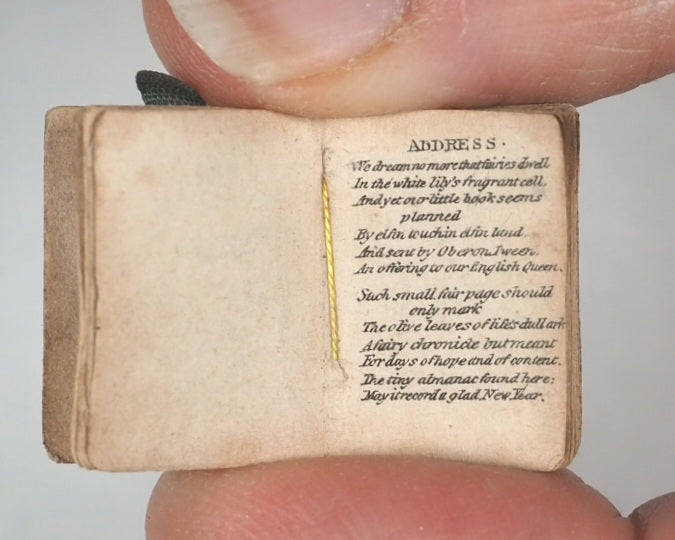 ADDRESS.
We dream no more that fairies dwell
In the white lily's fragrant cell,
And yet our little book seems
planned
By elfin touch in elfin land.
And sent by Oberon I ween,
An offering to our English Queen.
Such small fair page should
only mark
The olive leaves of life's dull ark
A fairy chronicle but meant
For days of hope and of content.
The tiny almanac found here:
May it record a glad New Year.